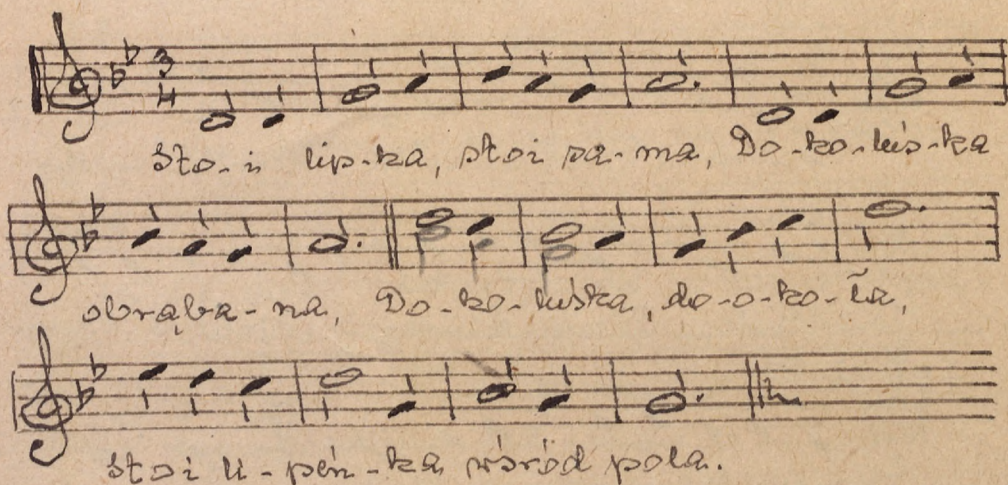 3
4
Sto-i lip-ka, stoi sa-ma, Do-ko-luś-ka
obrąba-na, Do-ko-luśka, do-o-ko-ła,
stoi li-pén-ka wśród pola.